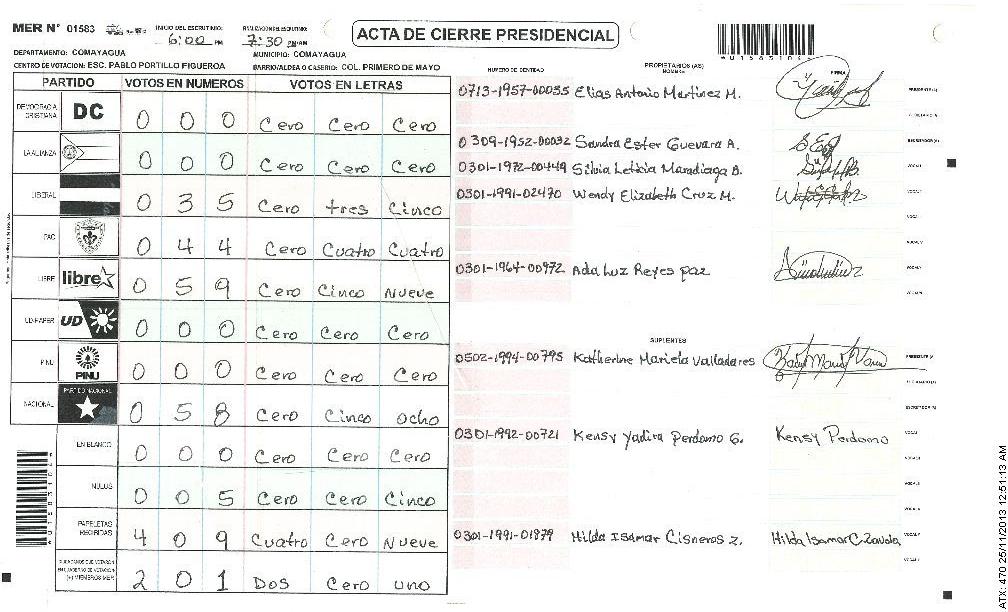 MER N° 01583 INICIO DEL ESCRUTINIO: 6:00 PM FINALIZACION DEL ESCRUTINIO: 7:30 PM
ACTA DE CIERRE PRESIDENCIAL
DEPARTAMENTO: COMAYAGUA MUNICIPIO: COMAYAGUA
CENTRO DE VOTACION: ESC. PABLO PORTILLO FIGUEROA BARRIO/ALDEA O CASERIO: COL. PRIMERO DE MAYO
PARTIDO VOTOS EN NUMEROS VOTOS EN LETRAS
DEMOCRACIA CRISTIANA DC 0 0 0 Cero Cero Cero
LA ALIANZA 0 0 0 Cero Cero Cero
LIBERAL 0 3 5 Cero tres Cinco
PAC 0 4 4 Cero Cuatro Cuatro
LIBRE libre 0 5 9 Cero Cinco Nueve
UD-FAPER UD 0 0 0 Cero Cero Cero
PINU PINU 0 0 0 Cero Cero Cero
NACIONAL PARTIDO NACIONAL 0 5 8 Cero Cinco ocho
EN BLANCO 0 0 0 Cero Cero Cero
NULOS 0 0 5 Cero Cero Cinco
PAPELETAS RECIBIDAS 4 0 9 Cuatro Cero Nueve
CIUDADANOS QUE VOTARON EN CUADERNO DE VOTACION (+) MIEMBROS MER 2 0 1 Dos Cero uno
PROPIETARIOS (AS)
NUMERO DE IDENTIDAD NOMBRE FIRMA
0713-1957-00035 Elias Antonio Martinez M.
0309-1952-00032 Sandra Ester Guevara A.
0301-1972-00449 Silvia Leticia Maradiaga B.
0301-1991-02470 Wendy Elizabeth Cruz M.
0301-1964-00972 Ada Luz Reyes paz
SUPLENTES
0502-1994-00795 Katherine Mariela Valladares
0301-1992-00721 Kensy Yadira Perdomo G. Kensy Perdomo
0301-1991-01879 Hilda Isamar Cisneros Z. Hilda Isamar C. Zavala
ATX: 470 25/11/2013 12:51:13 AM